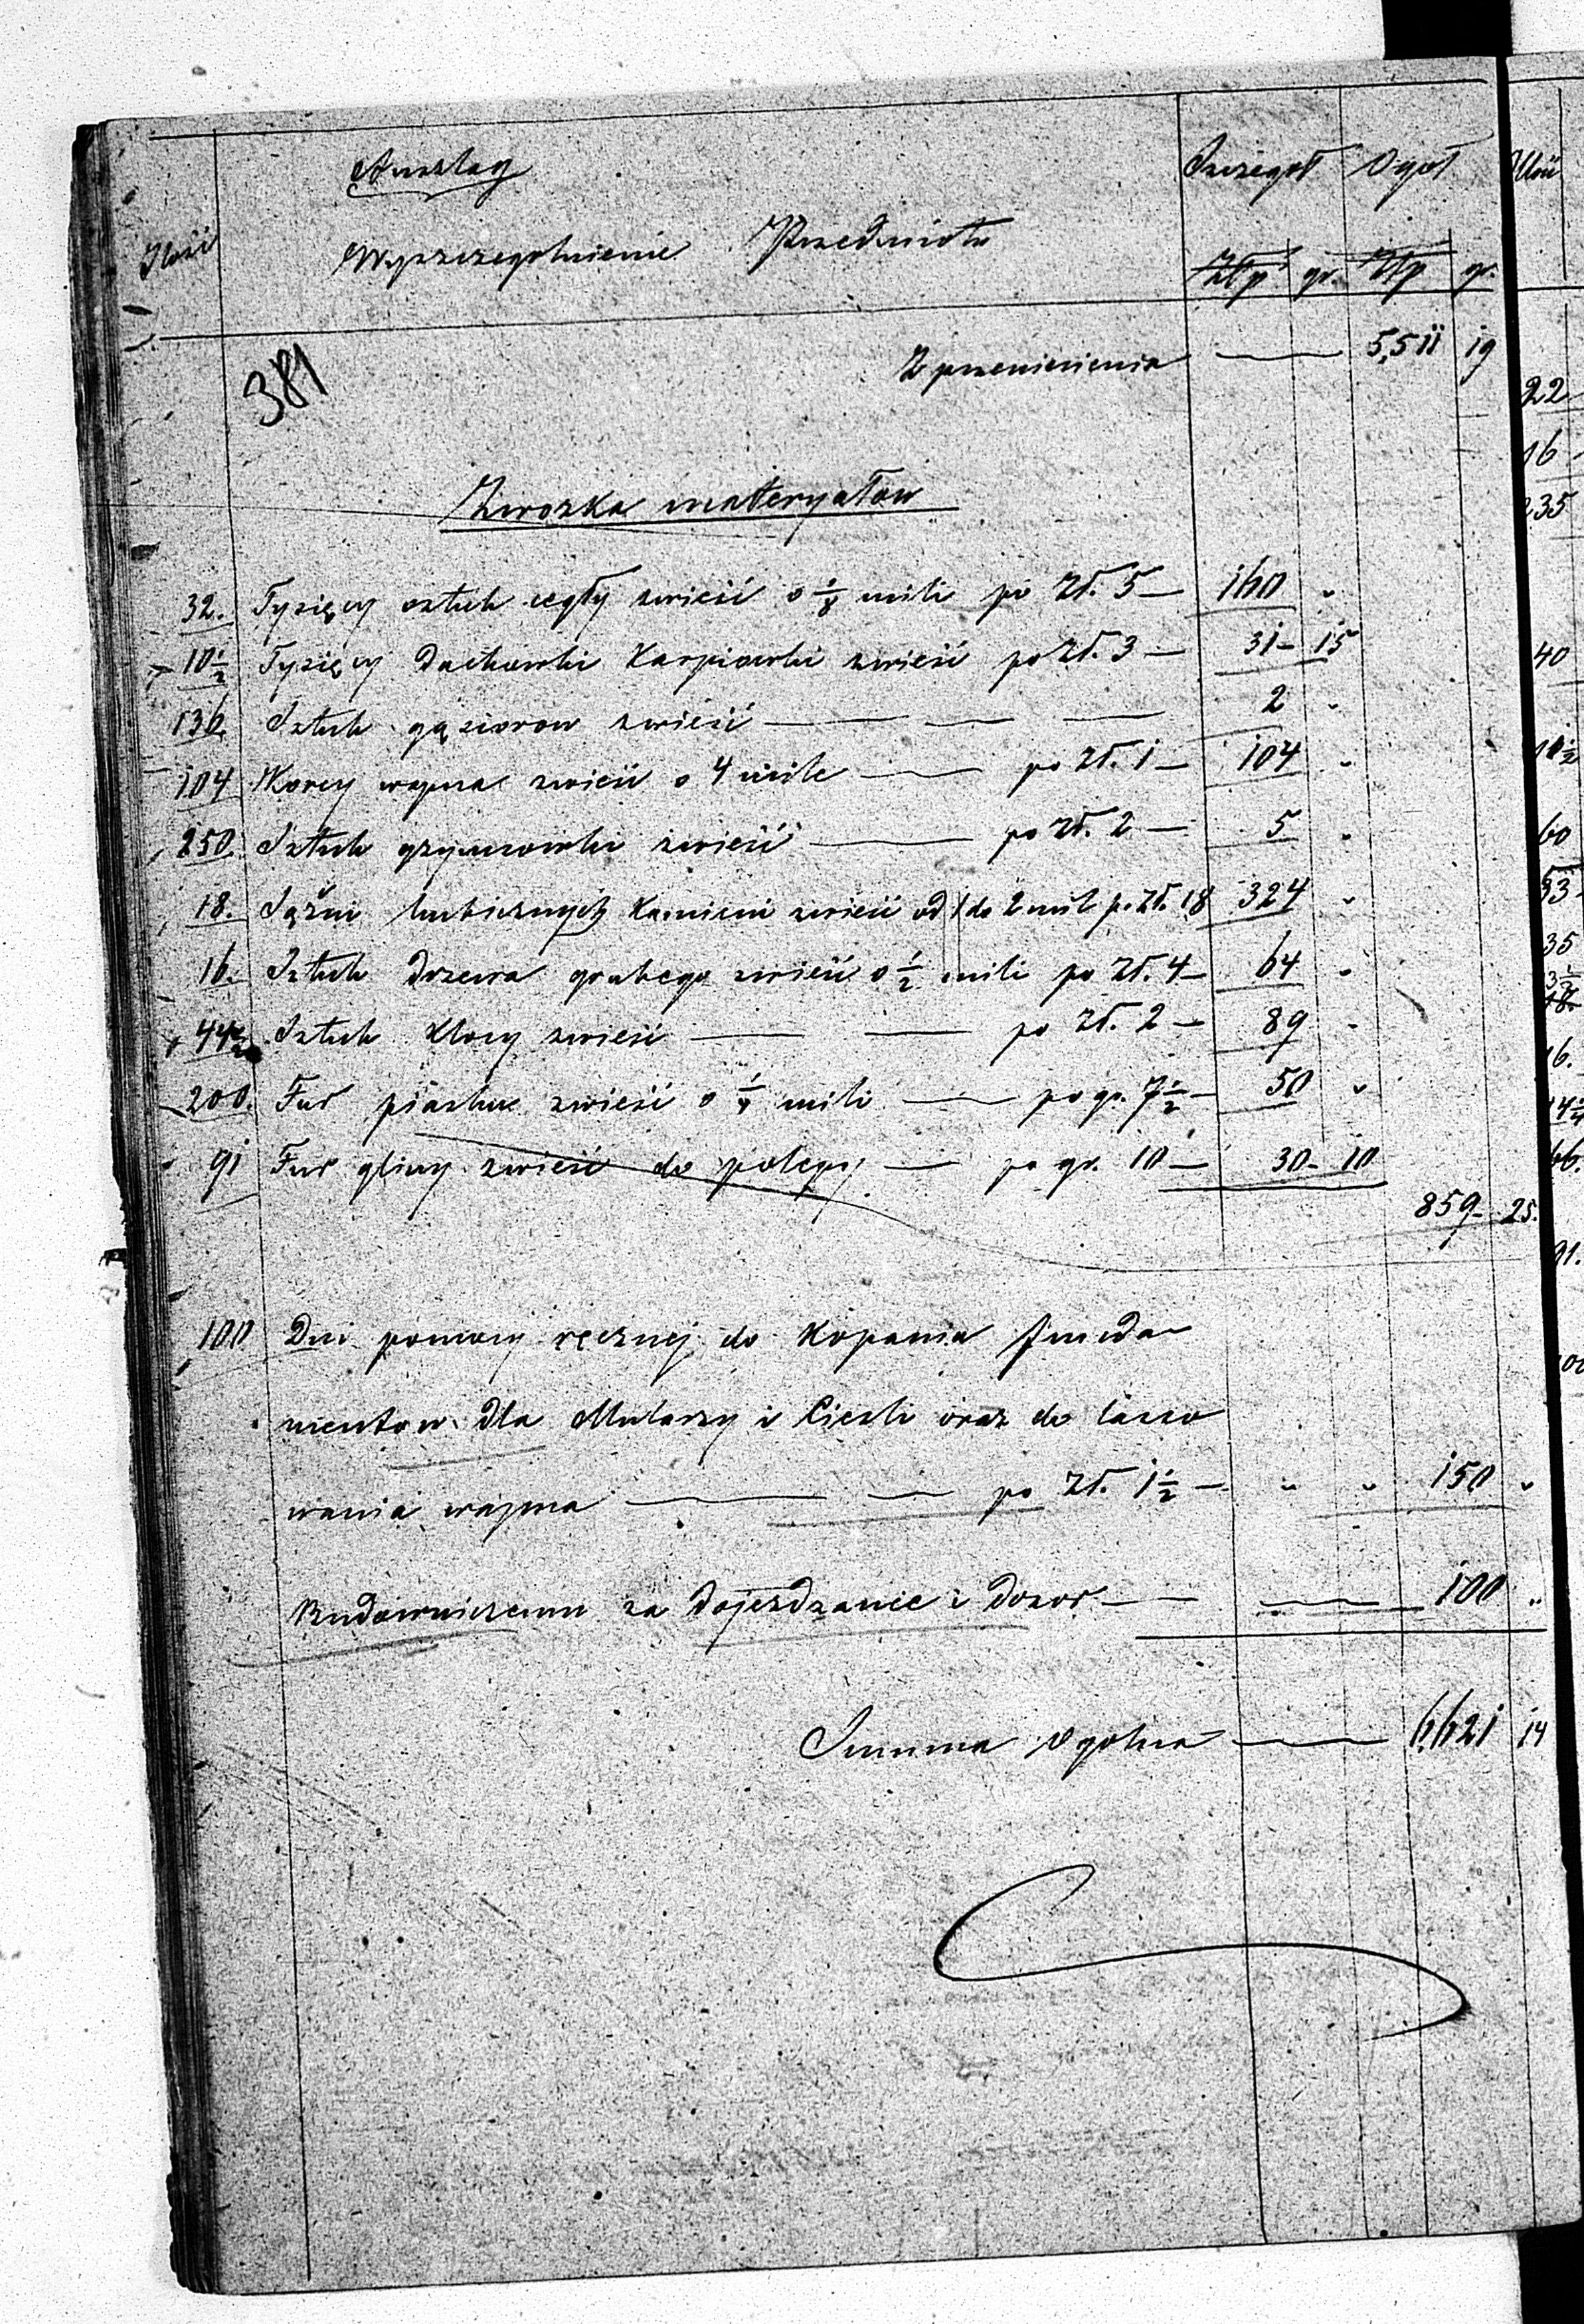 Anszlag
Ilość Wyszczegolnienie Przedmiotu Szczegoł Ogoł
Złp gr. Złp gr.
Z przeniesienia — 5,511 19
381
Zwozka materyałow
32. Tysięcy sztuk cegły zwieść o 1/8 mili po Zł. 5 — 160 "
10 1/2 Tysięcy Dachowki Karpiowki zwieść po Zł. 3 — 31 - 15
136. Sztuk gąsiorow zwieść — — — 2 "
104 Korcy wapna zwieść o 4 mile — po Zł. 1 — 104 "
250. Sztuk gzymsowki zwieść — po Zł. 2 — 5 "
18. Sążni kubicznych Kamieni zwieść od 1 do 2 mil p. Zł. 18 324 "
16. Sztuk Drzewa grubego zwieść o 1/2 mili po Zł. 4 — 64 "
44 1/2 Sztuk Klocy zwieść — — po Zł. 2 — 89 "
200. Fur piasku zwieść o 1/8 mili — po gr. 7 1/2 — 50 "
91 Fur gliny zwieść do polepy — po gr. 10 — 30 - 10
859 - 25.
100 Dni pomocy ręcznej do Kopania funda-
mentow dla Mularzy i Ciesli oraz do lasso
wania wapna — — po Zł. 1 1/2 — " " 150 "
Budowniczemu za Dojezdzanie i Dozor — — — 100 "
Summa Ogolna — 6,621 14